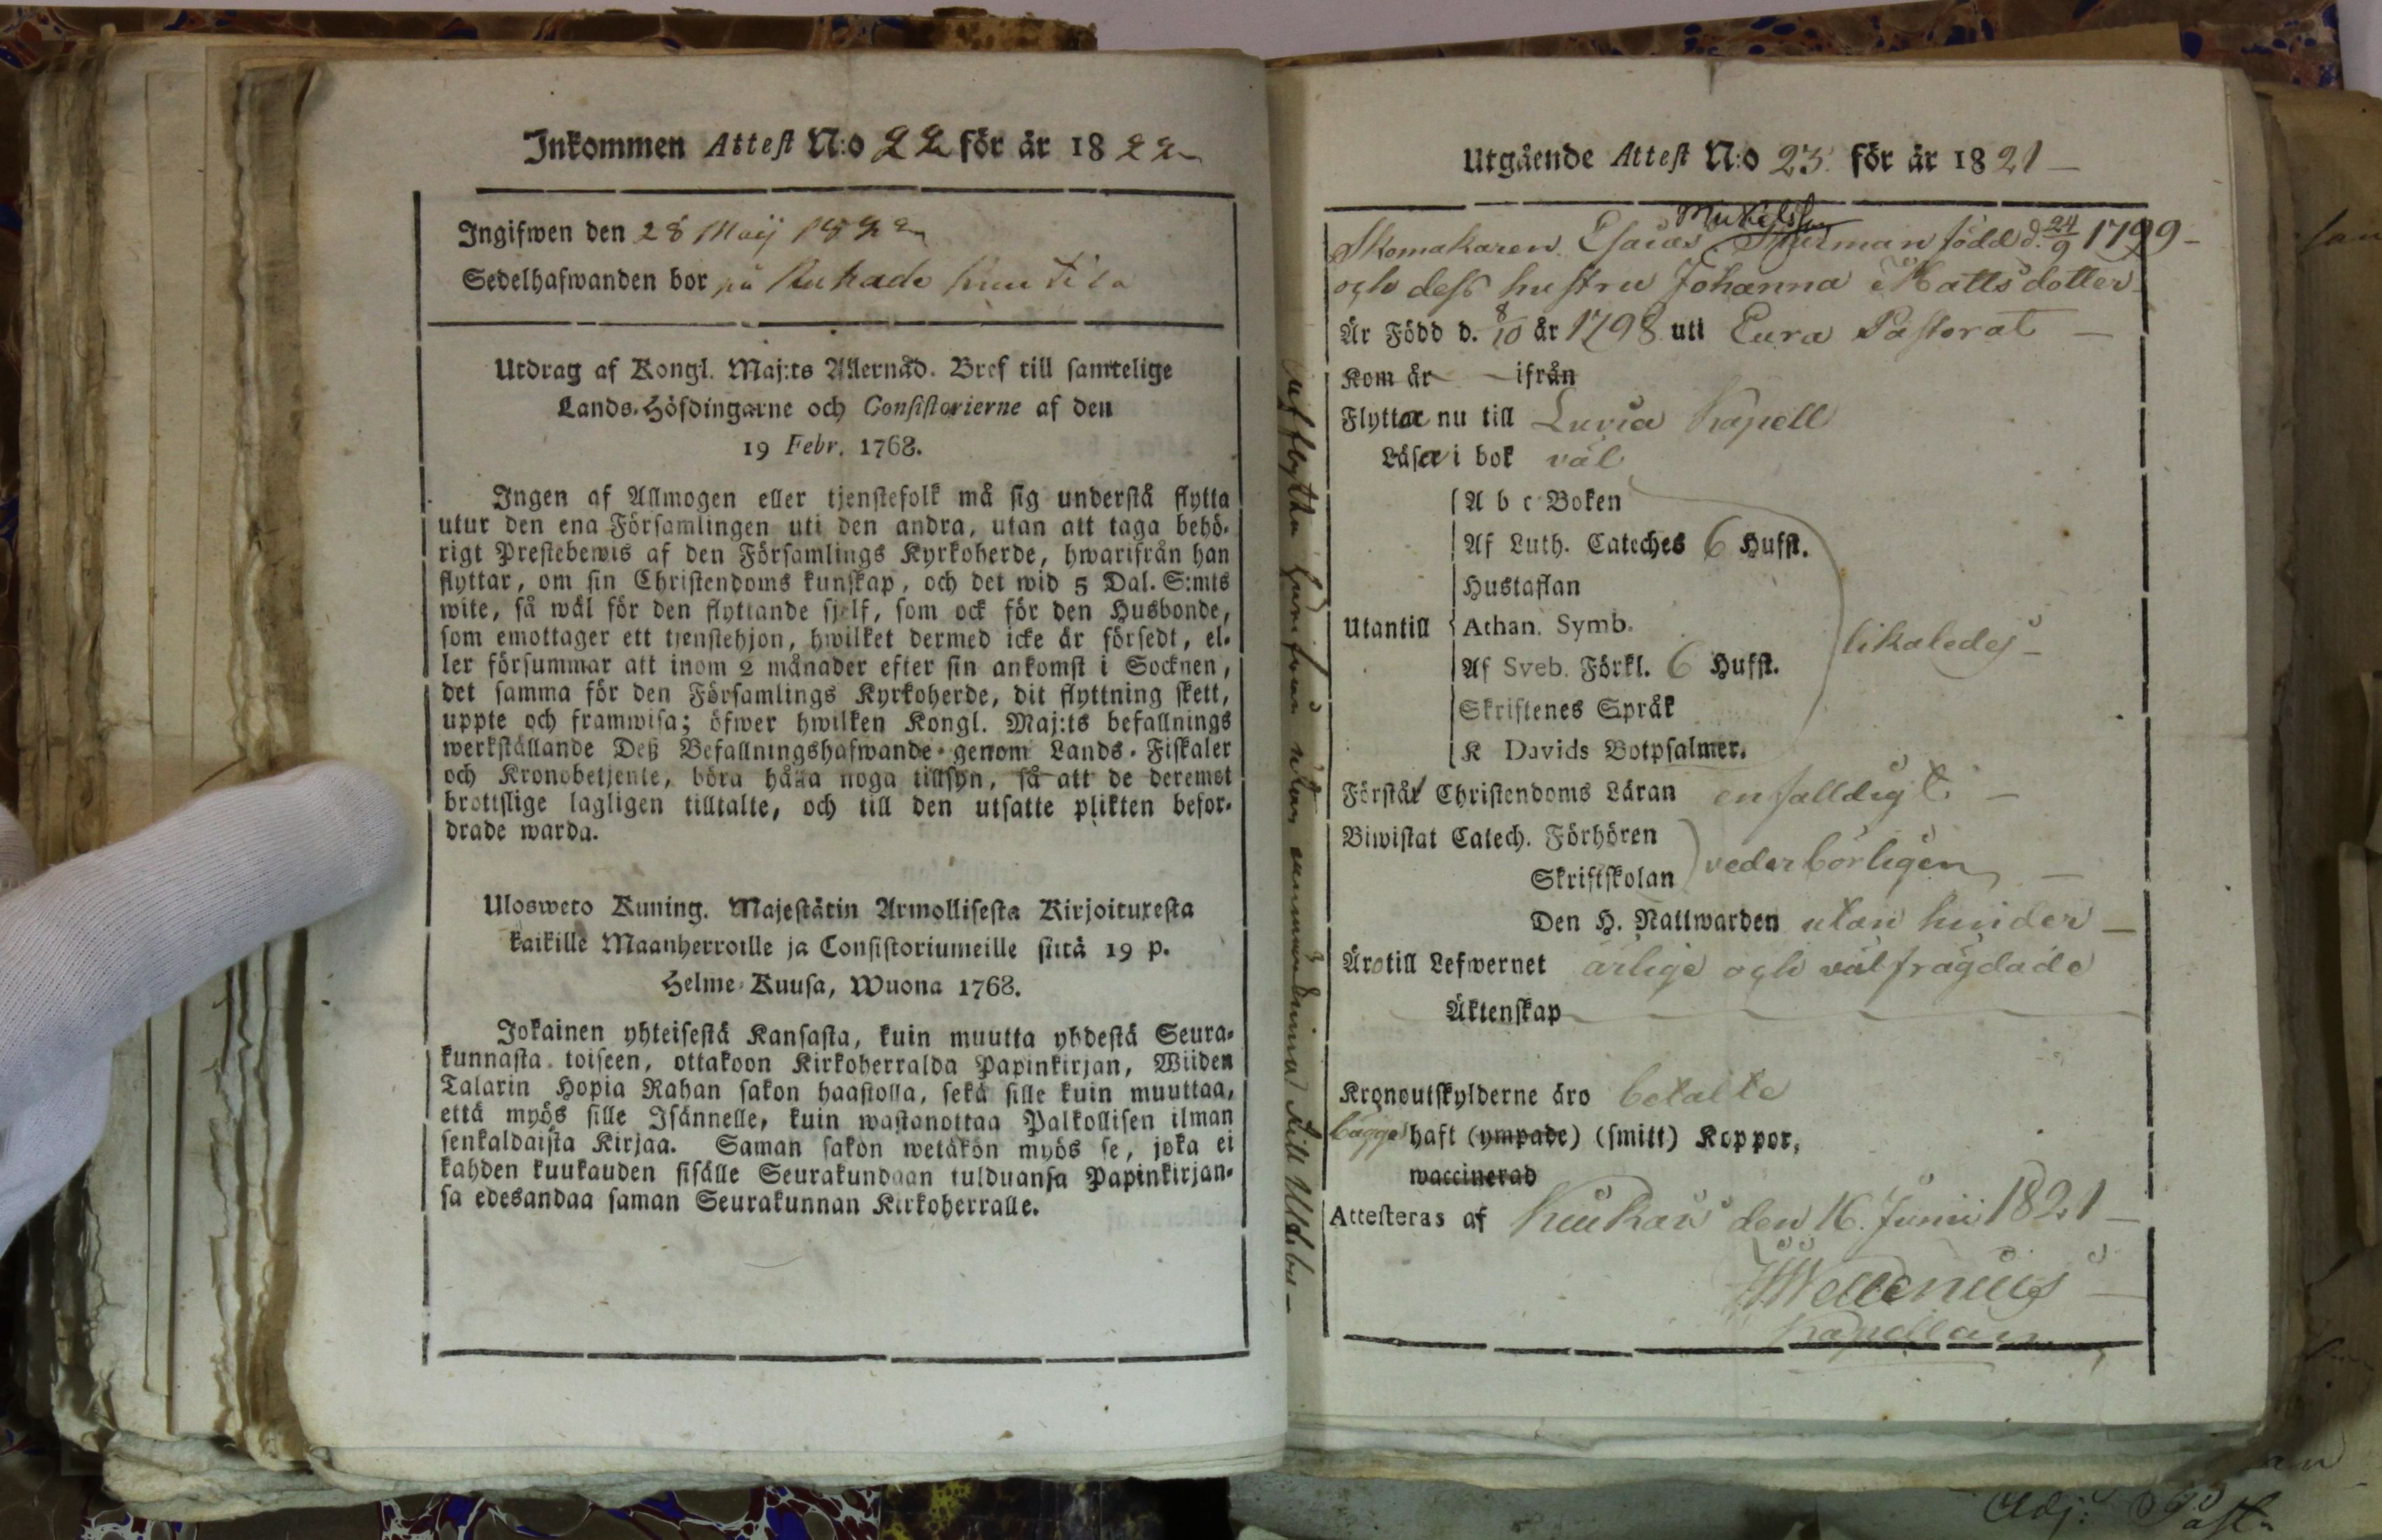 Inkommen Attest N:o 22 för år 1822
Ingifwen den 28 Maij 1822
Sedelhafwanden bor på
Utdrag af Kongl. Maj:ts Allernåd. Bref till samtelige
Lands-Höfdingarne och Consistorierne af den
19 Febr. 1768.
Ingen af Allmogen eller tjenstefolk må sig understå flytta
utur den ena Församlingen uti den andra, utan att taga behö-
rigt Prestebewis af den Församlings Kyrkoherde, hwarifrån han
flyttar, om sin Christendoms kunskap, och det wid 5 Dal. S:mts
wite, så wäl för den flyttande sjelf, som ock för den Husbonde,
som emottager ett tjenstehjon, hwilket dermed icke är försedt, el-
ler försummar att inom 2 månader efter sin ankomst i Socknen,
det samma för den Församlings Kyrkoherde, dit flyttning skett,
uppte och framwisa; öfwer hwilken Kongl. Maj:ts befallnings
werkställande Deß Befallningshafwande genom Lands-Fiskaler
och Kronobetjente, böra hålla noga tillsyn, så att de deremot
brottslige lagligen tilltalte, och till den utsatte plikten befor-
drade warda.
Ulosweto Kuning. Majestätin Armollisesta Kirjoituxesta
kaikille Maanherroille ja Consistoriumeille siitä 19 p.
Helme-Kuusa, Wuona 1768.
Jokainen yhteisestä Kansasta, kuin muutta yhdestä Seura-
kunnasta toiseen, ottakoon Kirkoherralda Papinkirjan, Wiiden
Talarin Hopia Rahan sakon haastolla, sekä sille kuin muuttaa,
että myös sille Isännelle, kuin wastanottaa Palkollisen ilman
senkaldaista Kirjaa. Saman sakon wetäkön myös se, joka ei
kahden kuukauden sisälle Seurakundaan tulduansa Papinkirjan-
sa edesandaa saman Seurakunnan Kirkoherralle.
Utgående Attest N:o 23 för år 1821
Skomakaren Esaias född d. 24/9 1799
och dess hustru Johanna Mattsdotter
Är Född d. 8/10 år 1798 uti Eura Pastorat
Kom år ifrån
Flytta nu till Luvia Kapell
Läsa i bok väl
A b c Boken
Af Luth. Cateches 6 Hufst.
Hustaflan
Utantill Athan. Symb. likaledes
Af Sveb. Förkl. 6 Hufst.
Skriftenes Språk
K Davids Botpsalmer.
Förstå Christendoms Läran enfalldigt
Biwistat Catech. Förhören
Skriftskolan vederbörligen
Den H. Nattwarden utan hinder
Äro till Lefwernet ärlige och välfrägdade
Äktenskap
Kronoutskylderne äro betalte
bägge haft (ympade) (smitt) Koppor,
waccinerad
Attesteras af Kiukais den 16. Junii 1821
Kapellan